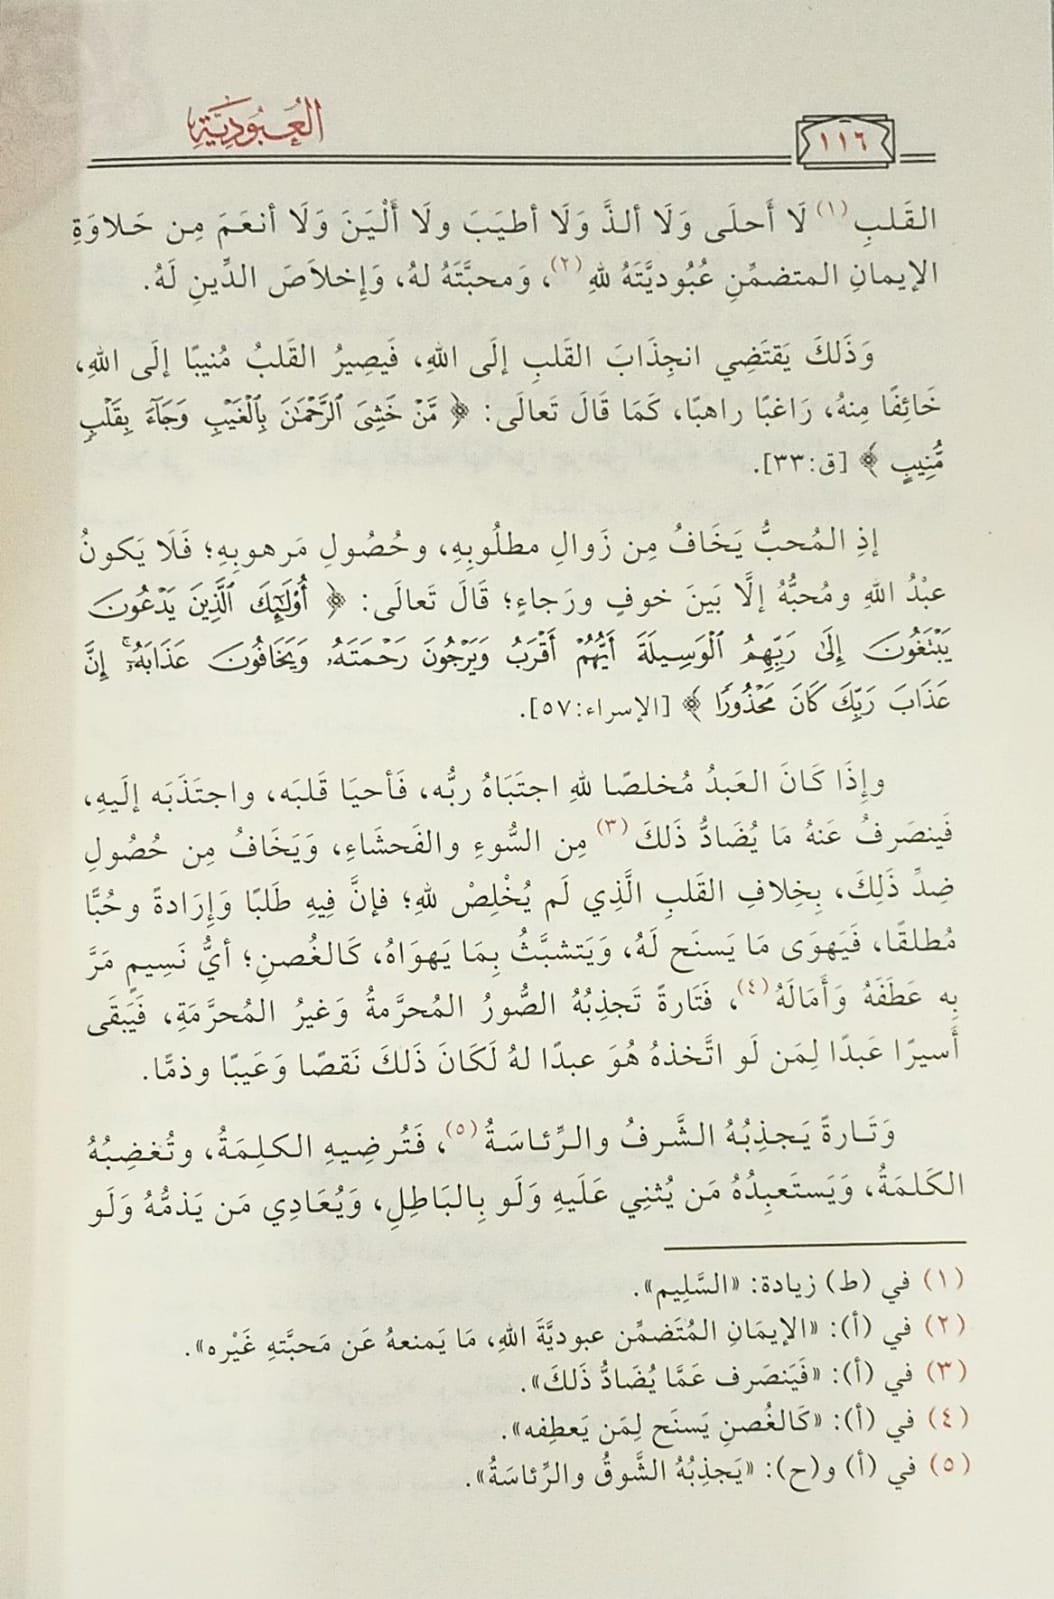 العُبُودِيَّة
١١٦
القَلبِ (١) لَا أَحلَى وَلَا ألذَّ وَلَا أطيَبَ ولَا أَلْيَنَ وَلَا أنعَمَ مِن حَلاوَةِ
الإيمانِ المتضمِّنِ عُبُوديَّتَهُ للهِ (٢)، وَمحبَّتَهُ لهُ، وَإخلاَصَ الدِّينِ لَهُ.
وَذَلكَ يَقتَضِي انجِذَابَ القَلبِ إلَى اللهِ، فَيصِيرُ القَلبُ مُنيبًا إلَى اللهِ،
خَائِفًا مِنهُ، رَاغبًا راهبًا، كَمَا قَالَ تَعالَى: ﴿ مَّنۡ خَشِيَ ٱلرَّحۡمَٰنَ بِٱلۡغَيۡبِ وَجَآءَ بِقَلۡبٖ
مُّنِيبٍ ﴾ [ق:٣٣].
إذِ المُحبُّ يَخَافُ مِن زَوالِ مطلُوبِهِ، وحُصُولِ مَرهوبِهِ؛ فَلَا يَكونُ
عبْدُ اللهِ ومُحبُّهُ إلَّا بَينَ خوفٍ ورَجاءٍ؛ قَالَ تَعالَى: ﴿ أُوْلَٰٓئِكَ ٱلَّذِينَ يَدۡعُونَ
يَبۡتَغُونَ إِلَىٰ رَبِّهِمُ ٱلۡوَسِيلَةَ أَيُّهُمۡ أَقۡرَبُ وَيَرۡجُونَ رَحۡمَتَهُۥ وَيَخَافُونَ عَذَابَهُۥٓۚ إِنَّ
عَذَابَ رَبِّكَ كَانَ مَحۡذُورٗا ﴾ [الإسراء:٥٧].
وإِذَا كَانَ العَبدُ مُخلصًا للهِ اجتَبَاهُ ربُّه، فَأحيَا قَلبَه، واجتَذَبَه إلَيهِ،
فَينصَرفُ عَنهُ مَا يُضَادُّ ذَلكَ (٣) مِن السُّوءِ والفَحشَاءِ، وَيَخَافُ مِن حُصُولِ
ضِدِّ ذَلِكَ، بِخِلافِ القَلبِ الَّذِي لَم يُخْلِصْ للهِ؛ فإنَّ فِيهِ طَلبًا وَإِرَادةً وحُبًّا
مُطلقًا، فَيَهوَى مَا يَسنَح لَهُ، وَيَتشبَّثُ بِمَا يَهوَاهُ، كَالغُصنِ؛ أيُّ نَسِيمٍ مَرَّ
بِه عَطَفَهُ وَأَمَالَهُ (٤)، فَتَارةً تَجذِبُهُ الصُّورُ المُحرَّمةُ وَغيرُ المُحرَّمَةِ، فَيَبقَى
أَسيرًا عَبدًا لِمَن لَو اتَّخذهُ هُوَ عبدًا لهُ لَكَانَ ذَلكَ نَقصًا وَعَيبًا وذمًّا.
وَتَـارةً يَـجذِبُهُ الـشَّرفُ والـرِّئـاسَـةُ (٥)، فَتُرضِيهِ الكلِمَةُ، وتُغضِبُهُ
الكَلمَةُ، وَيَستَعبِدُهُ مَن يُثنِي عَلَيهِ وَلَو بِالبَاطِلِ، وَيُعَادِي مَن يَذمُّهُ وَلَو
(١) في (ط) زيادة: «السَّلِيم».
(٢) في (أ): «الإيمَانِ المُتَضمِّن عبوديَّةَ اللهِ، مَا يَمنعهُ عَن مَحبَّتهِ غَيْره».
(٣) في (أ): «فَيَنصَرف عَمَّا يُضَادُّ ذَلكَ».
(٤) في (أ): «كَالغُصنِ يَسنَح لِمَن يَعطِفه».
(٥) في (أ) و(ح): «يَجذِبُهُ الشَّوقُ والرِّئاسَةُ».